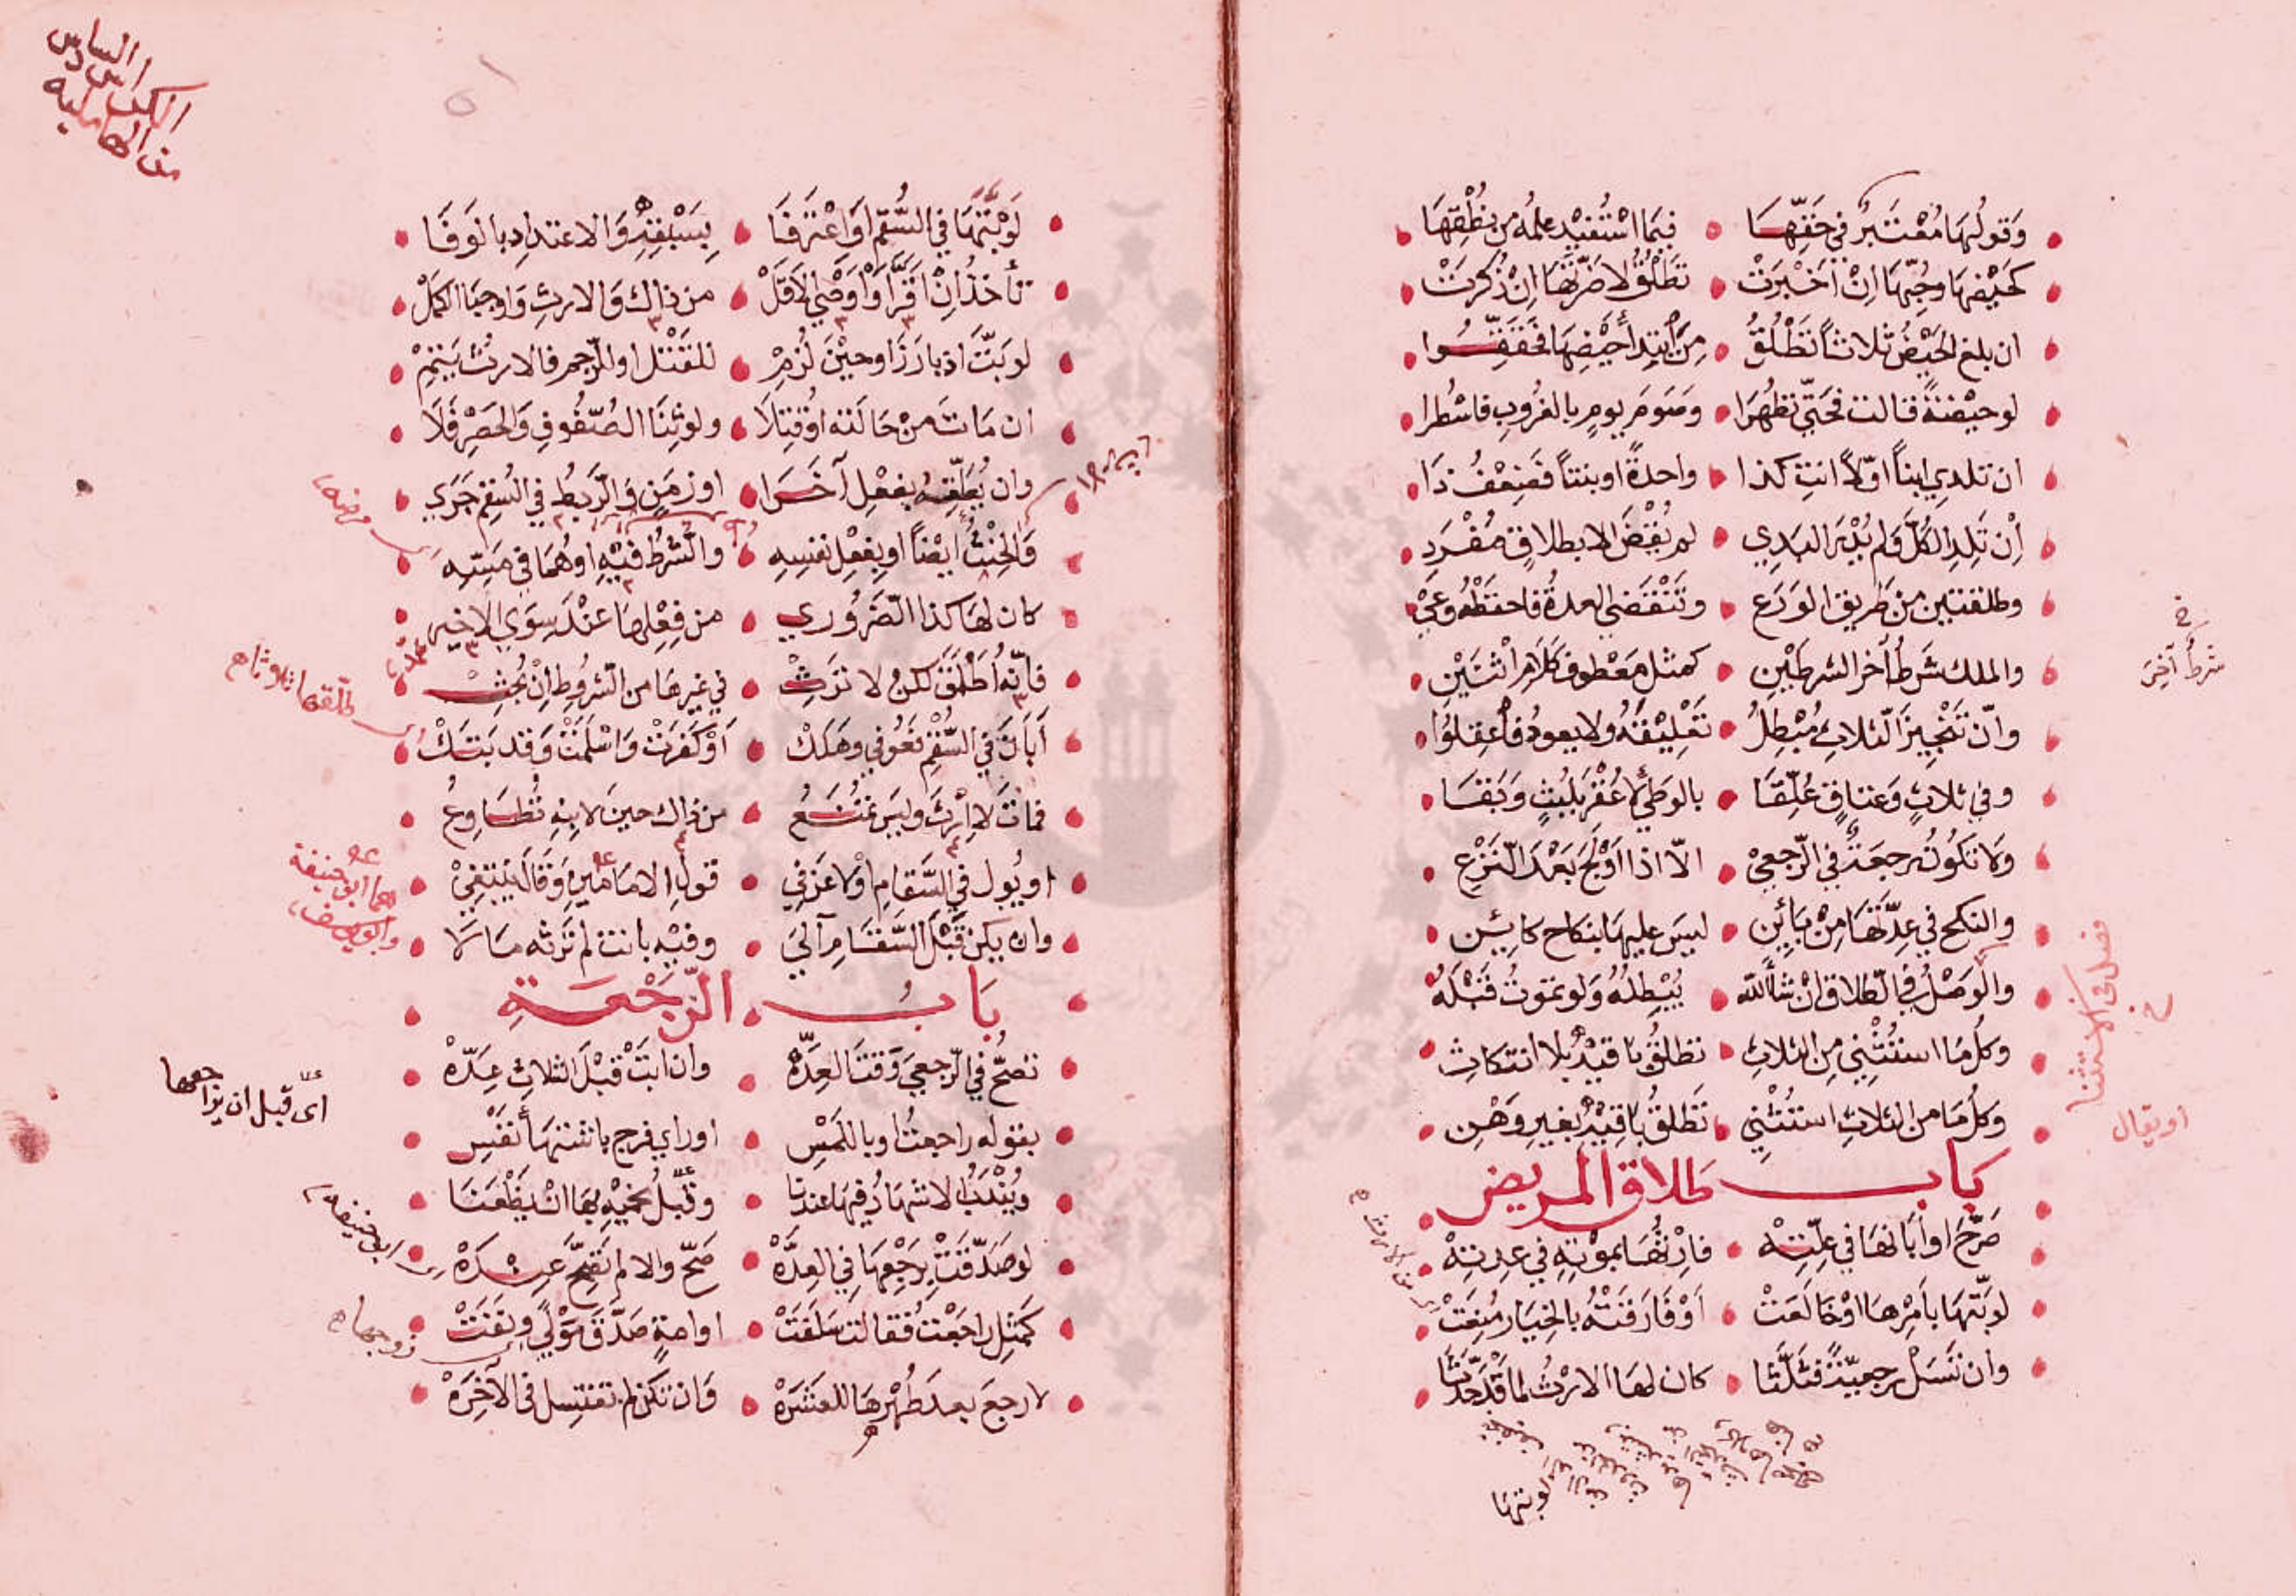 وَقَولُهَا مُعْتَبَرٌ في حَقِّهَا فِيمَا اسْتُفِيْدَ عِلمُه مِن نُطْقِهَا
كَحَيْضِهَا وحُبِّهَا اِنْ اَخْبَرَتْ تَطْلُقُ لا ضَرَّتُهَا اِنْ ذُكِرَتْ
ان بلغ الحَيْضُ ثلاثاً تَطْلُقُ مِنَ ابْتِدا حَيْضِهَا فَحَقِّقُوا
لو حيْضَةً قالت فحَتّي تطهُرَا وصَومَ يومٍ بالغُروبِ فاسْطُرا
ان تلدي ابناً اوّلاً انتِ كذا واحدةً او بنتاً فَضِعْفُ ذَا
اِنْ تَلِدِ الكُلَّ وَلم يُدْرَ البَدِي لم يُقْضَ الا بطلاقٍ مُفْرَدِ
وطلقتين من طريق الوَرَع وتَنْقَضي العدةُ فاحفَظْهُ وعِيْ
والملك شَرطُ اَخر الشرطَيْنِ كمثل مَعْطوف كَلَام اثنَيْنِ
شرطٌ آخِرَ
وانّ تَنْجِيزَ الثلاثِ مُبْطِلُ تَعْلِيْقَهُ ولا يعودُ فاعقِلُوا
وفي ثلاثٍ وَعتاقٍ عُلِّقَا بالوَطيْ لا عُقْرَ بلُبْثٍ وَبَقَا
وَلا تكُونُ رجعَةٌ في الرّجعِيْ الاّ اذا اَوْلَجَ بَعْدَ النَّزْعِ
والنكح في عِدّتهَا مِنْ بَائِنِ ليسَ عليهَا بنكاح كائِنِ
فصل في الاستثنا
والوَصْلُ في الطلاق انْ شَأَ اللّه يُبْطِلُهُ وَلو تموتُ قَبْلَهُ
وَكلُ مَا استُثْنِي مِن الثلاثِ تطلقُ باقيْهِ بلا انتكاثِ
وَكلُ مَا من الثلاثِ استُثْنِي تَطلقُ بَاقِيْهِ بغيرِ وَهْنِ
او يقال
باب طلاق المريض
صَرَّحَ او اَبَانهَا في عِلّتِهْ فاِرْثُهَا بموْتِهِ في عِدتِهْ
من الارث
لو بَتّهَا بأمْرِهَا اوْ خَالَعَتْ اَوْ فَارَقَتْهُ بالخِيَار مُنِعَتْ
وان تَسَلْ رجعيّةً فثَلّثَا كان لهَا الارْثُ لما قَدْ حَدَثَا
لو بتها
الكراس السادس
من الهامليه
٥١
لوْ بَتّهَا في السُّقم اَوِ اعْتَرفَا بِسَبْقِهِ وَالاعتدادِ بالوَفَا
تأخذُ اِنْ اَقَرَّ اَوْ اَوْصَي الاَقَلّْ من ذاك وَالارثِ وَاوجبَا اكمَلْ
لو بَتَّ اذ بارَزَ او حيْنَ لُزِمْ للقَتْل او للرّجمِ فالارثُ يَتِمْ
ان مَاتَ من حَالته او قُتِلَا ولو ثِنَا الصُّفُوفِ وَالحَصْرِ فَلَا
وان يُعَلِّقْهُ بفعْلِ آخَرَا او زمَنٍ وَالرّبطُ في السُقم جَرَي
وَالحِنْثُ اَيْضاً او بِفِعْلِ نَفسِهِ والشَّرطُ فيْهِ او هُمَا في مَسِّهِ
مرضه
كان لهَا كذا الضّرُوري من فِعْلِهَا عنْدَ سِوَي الاخير
محمد
فاِنّه اُطْلِقَ لكنْ لا تَرِثْ في غيرهَا من الشّروطِ اِنْ بُحِثْ
طلّقها ثلاثا
اَبَانَ في السُّقْمِ فَعُوفي وهَلَكْ اَوْ كَفَرَتْ وَاسْلَمَتْ وَقد بَتَكْ
فماتَ لا اِرْثَ وليسَ تمنَعُ من ذاك حينَ لابنِهِ تُطَاوِعُ
او يُول في السَّقامِ اوْ لاعَنَ في قولِ الامَامَينِ وَقَالَ يَنْتَفِيْ
هما ابو حنيفة
وابو يوسف
وان يكن قَبْلَ السَّقَامِ آلَي وفيْهِ بانت لم تَرثه مَالَا
بَابُ الرَّجْعَةِ
تصحُّ في الرّجعي وَقتَ العِدّهْ وان ابتْ قبْلَ الثلاثِ عِدَّهْ
اى قبل ان يراجعها
بقوله راجعتُ او باللمْسِ او راي فرج باشتهَاء نفْسِ
ويُنْدَبُ الاشهَادُ فيهَا عندنا وقَبْلُ يخفيْهِ بهَا انْ يظْعَنَا
لو صَدّقَتْ بِرَجْعِهَا في العِدَّهْ صَحّ والا لم تَصِحَّ عِنْدَهْ
ابو حنيفه
كَمثلِ راجَعْتُ فقالت سَلَفَتْ او امةٍ صَدَّقَ مَوْليً ونفَتْ
زوجها
لا رجعَ بعدَ طُهْرهَا للعَشَرَهْ وَان تكن لم تغتسِل في الآخِرَهْ